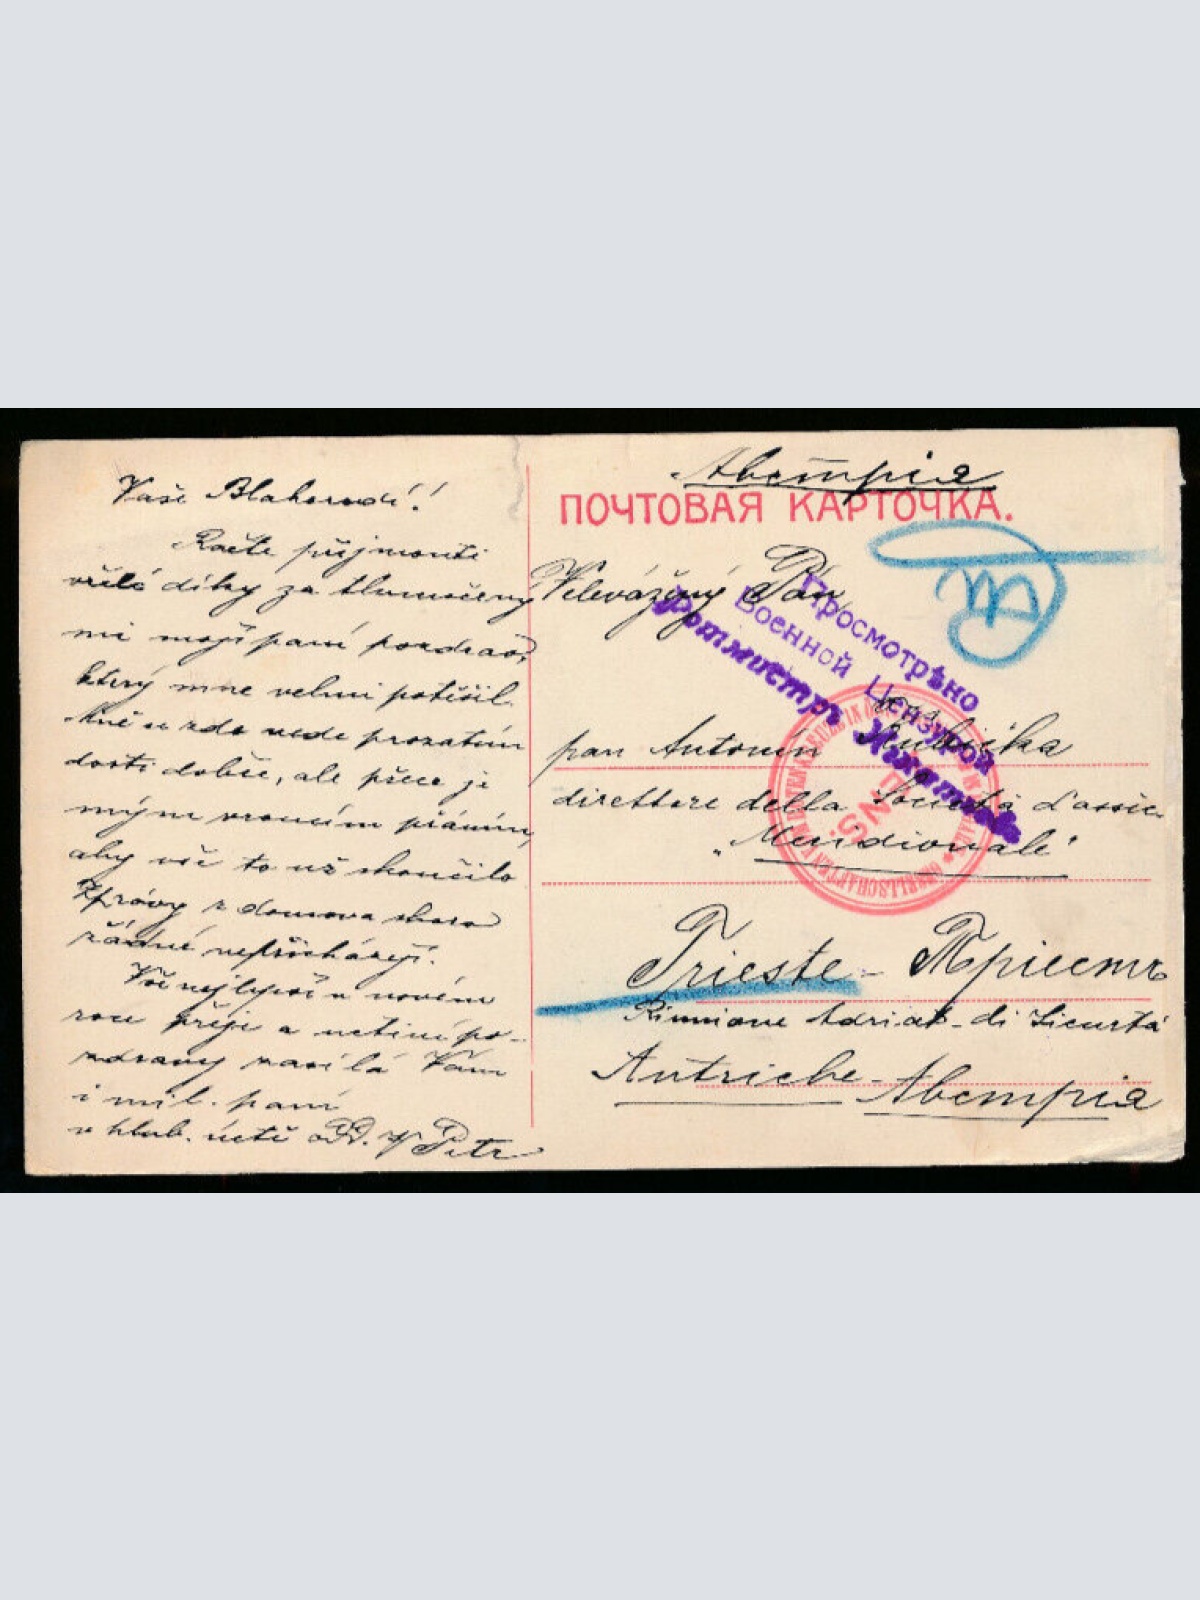 Vaše Blahorodí!
Račte přijmouti
vřelé díky za tlumočený
mi mojí paní pozdrav,
který mne velmi potěšil.
Mně se zde vede prozatím
dosti dobře, ale přece je
mým vroucím přáním,
aby vše to už skončilo
Zprávy z domova skoro
žádné nepřicházejí.
Vše nejlepší v novém
roce přeje a uctivé po-
zdravy zasílá Vám
i mil. paní
v hlub. úctě Petr
Австрія
ПОЧТОВАЯ КАРТОЧКА.
Velevážený Pán,
Просмотрѣно
Военной Цензурой
Ротмистръ Никитинъ
pan Antonín
direttore della Società d'assic.
„Meridionale"
Trieste - Тріестъ
Riunione Adriat. di Sicurtà
Autriche - Австрія